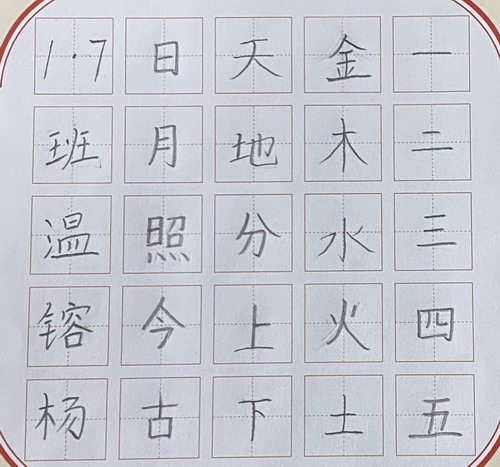 一二三四五
金木水火土
天地分上下
日月照今古
1·7班温镕杨